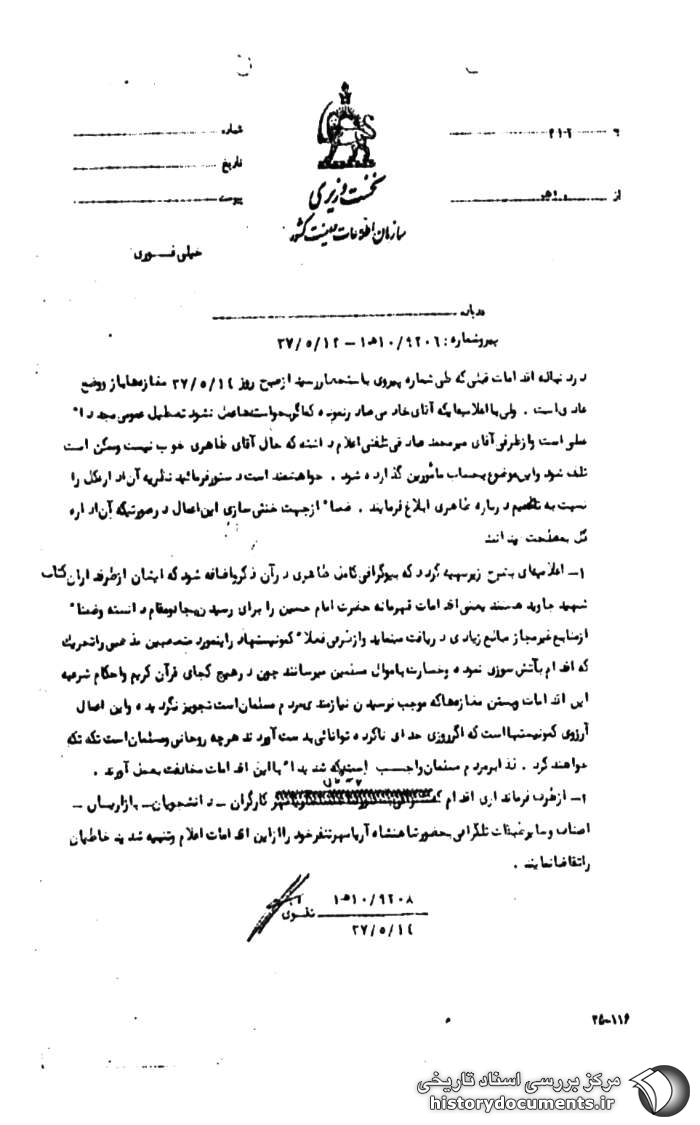 به ۲۱۲
شماره
تاریخ
از ۱۰هـ
پیوست
نخست وزیری
سازمان اطلاعات و امنیت کشور
خیلی فوری
درباره
پیرو شماره : ۹۲۰۶/۱۰هـ۱ – ۳۷/۵/۱۲
در دنباله اقدامات قبلی که طی شماره پیروی باستحضار رسید از صبح روز ۳۷/۵/۱۴ مغازه‌ها باز و وضع
عادی است . ولی با اعلامیه‌ایکه آقای خادمی صادر نموده که اگر بخواسته‌ها عمل نشود تعطیل عمومی مجدداً
عملی است و از طرفی آقای میرمحمد صادقی تلفنی اعلام داشته که حال آقای طاهری خوب نیست و ممکن است
تلف شود و این موضوع بحساب مأمورین گذارده شود . خواهشمند است دستور فرمائید نظریه آن اداره کل را
نسبت به تصمیم درباره طاهری ابلاغ فرمایند . ضمناً از جهت خنثی سازی این اعمال در صورتیکه آن اداره
کل بمصلحت بدانند
۱– اعلامیه‌ای بشرح زیر تهیه گردد که بیوگرافی کامل طاهری در آن ذکر و اضافه شود که ایشان از طرفداران کتاب
شهید جاوید هستند یعنی اقدامات قهرمانه حضرت امام حسین را برای رسیدن بجاه و مقام دانسته و ضمناً
از منابع غیرمجاز مبالغ زیادی دریافت مینماید و از طرفی فعلاً کمونیستها در اینمورد متعصبین مذهبی را تحریک
که اقدام بآتش سوزی نموده و خسارت باموال مسلمین میرسانند چون در هیچ کجای قرآن کریم و احکام شرعیه
این اقدامات و بستن مغازه‌ها که موجب نرسیدن نیازمندی مردم مسلمان است تجویز نگردیده و این اعمال
آرزوی کمونیستها است که اگر روزی خدای ناکرده توانائی بدست آوردند هرچه روحانی و مسلمان است تکه تکه
خواهند کرد . لذا بر مردم مسلمان واجب است که شدیداً با این اقدامات مخالفت بعمل آورند .
۲– از طرف فرمانداری اقدام که کارگران – دانشجویان – بازاریان –
اصناف و سایر طبقات تلگرافی بحضور شاهنشاه آریامهر تنفر خود را از این اقدامات اعلام و تنبیه شدید خاطیان
را تقاضا نمایند .
۹۲۰۸/۱۰هـ۱
تقوی
۳۷/۵/۱۴
۲۵-۱۱۶
مرکز بررسی اسناد تاریخی
historydocuments.ir